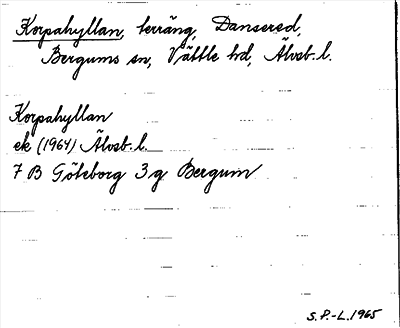 Korpahyllan, terräng, Dansered,
Bergums sn, Vättle hd, Älvsb. l.
Korpahyllan
ek (1964) Älvsb. l.
7 B Göteborg 3 g Bergum
S.P.-L. 1965